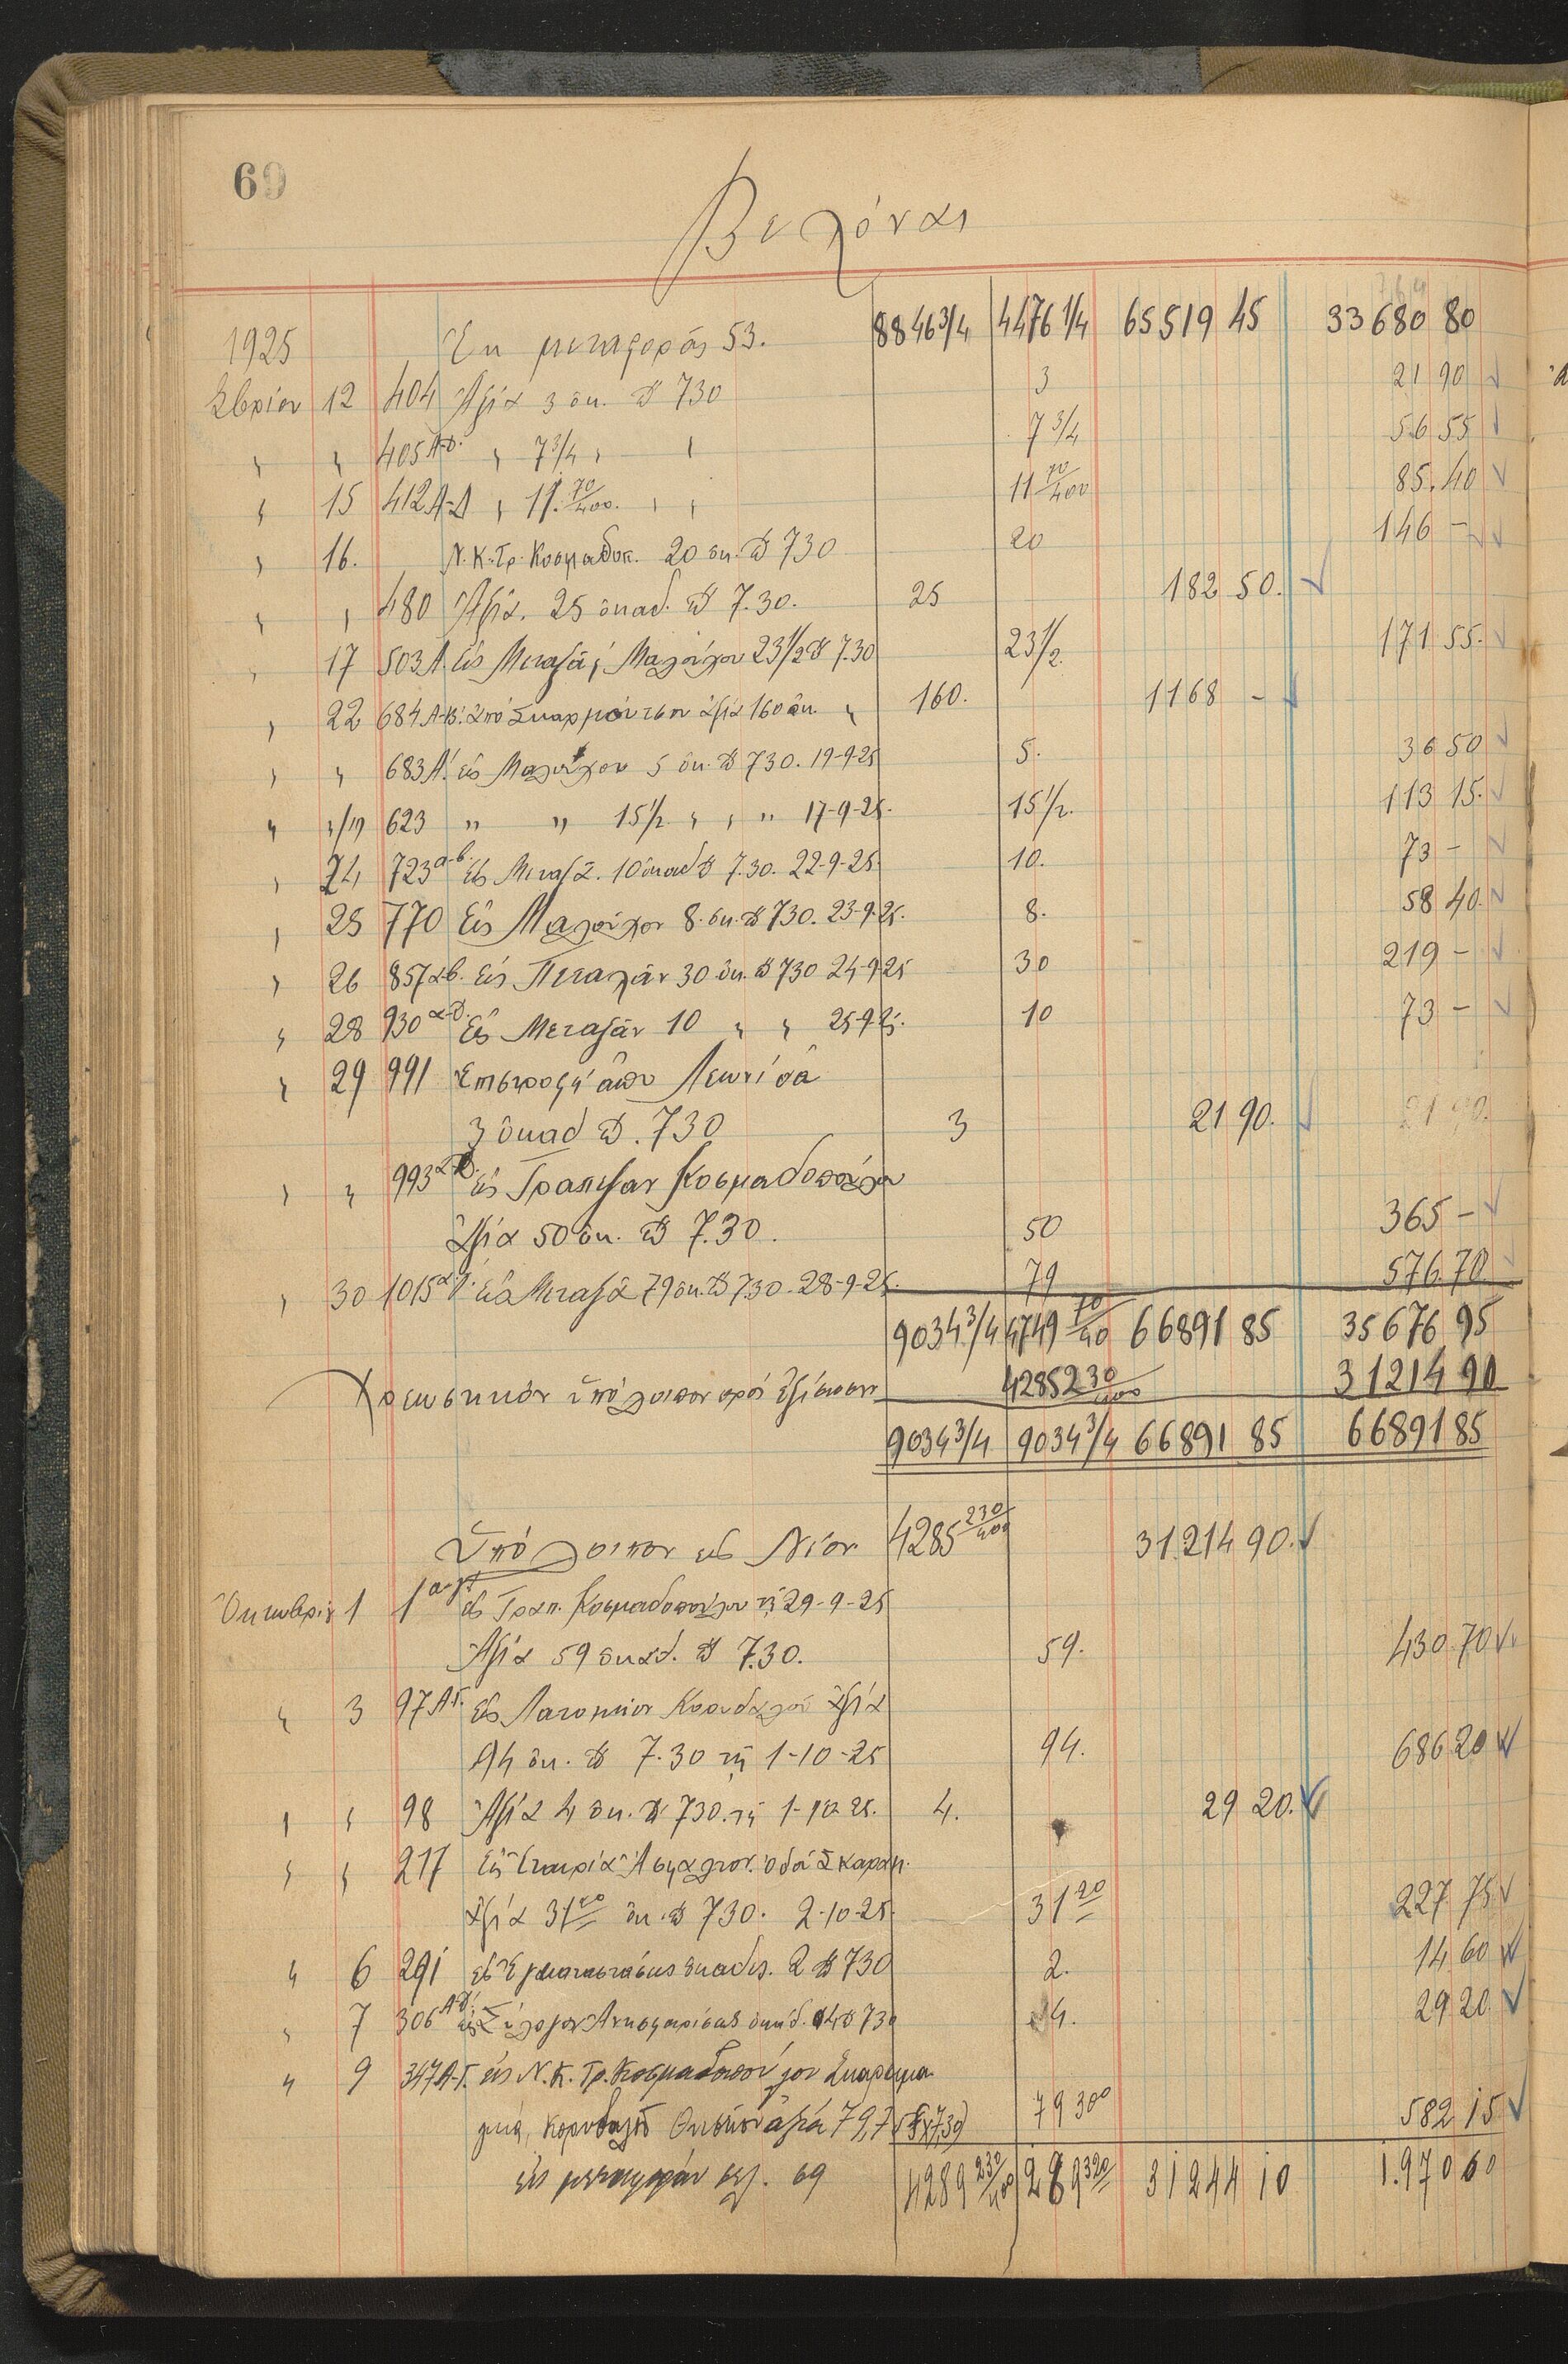 69
Βελόναι
1925 Ἐκ μεταφορᾶς 53. 8846 3/4 4476 1/4 65519 45 33680 80
7βρίου 12 404 Ἀξία 3 ὀκ. 730 3 21 90
" " 405 Α-Δ. " 7 3/4 " " 7 3/4 56 55
" 15 412 Α-Δ " 11. 70/400. " " 11 70/400 85.40
" 16. Ν.Κ. Τρ. Κοσμαδοπ. 20 ὀκ. 730 20 146 –
" " 480 Ἀξία. 25 ὀκάδ. 7.30. 25 182 50.
" 17 503 Α. Εἰς Μεταξᾶ Μαλούχου 23 1/2 7.30 23 1/2. 171 55.
" 22 684 Α-Β! ἀπὸ Σκαρμούτσον ἀξία 160 ὀκ. " 160. 1168 –
" " 683 Α! εἰς Μαλούχον 5 ὀκ. 730. 19-9-25 5. 36 50
" "/" 623 " " 15 1/2 " " " 17-9-25. 15 1/2. 113 15.
" 24 723 α-β. Εἰς Μεταξᾶ. 10 ὀκάδ 7.30. 22-9-25. 10. 73 –
" 25 770 Εἰς Μαλούχον 8. ὀκ. 730. 23-9-25. 8. 58 40.
" 26 857 αβ. Εἰς Πεταλᾶν 30 ὀκ. 730 24-9-25 30 219 –
" 28 930 α-δ. Εἰς Μεταξᾶν 10 " " 25-9-25. 10 73 –
" 29 991 Ἐπιστροφὴ ἀπὸ Λεωνίδα
3 ὀκάδ. 730 3 21 90. 21 90.
" " 993 εἰς Τράπεζαν Κοσμαδοπούλου
Ἀξία 50 ὀκ. 7.30. 50 365 –
" 30 1015 α-γ. Εἰς Μεταξᾶ 79 ὀκ. 7.30. 28-9-25. 79 576.70
9034 3/4 4749 70/40 66891 85 35676 95
Χρεωστικὸν ὑπόλοιπον πρὸς ἐξίσωσιν 4285 230/400 31214 90
9034 3/4 9034 3/4 66891 85 66891 85
Ὑπόλοιπον εἰς Νέον 4285 230/400 31214 90.
Ὀκτωβρίου 1 1 α-γ. εἰς Τραπ. Κοσμαδοπούλου τῇ 29-9-25
Ἀξία 59 ὀκάδ. 7.30. 59. 430 70
" 3 97 Α-Γ. εἰς Λατομεῖον Κορυδαλοῦ ἀξία
94 ὀκ. 7.30 τῇ 1-10-25 94. 686 20
" " 98 Ἀξία 4 ὀκ. 730. τῇ 1-10-25. 4. 29 20.
" " 217 Εἰς Ἑταιρία Ἀσφάλτου. ὁδοῦ Σκαραμ.
ἀξία 31 20 ὀκ. 730. 2-10-25. 31 20 227 75
" 6 291 εἰς Ἐγκαταστάσεις ὀκάδες. 2 730 2. 14 60
" 7 306 Α-Δ. εἰς Σύλογον ὀκάδ. 4 730 4. 29 20
" 9 347 Α-Γ. εἰς Ν. Κ. Τρ. Κοσμαδοπούλου Σκαραμα
γκά, Κορυδαλοῦ ἀξία 79,7 (7,30) 79 300 582 15
εἰς μεταφορὰν σελ. 69 4289 230/400 269 320 31244 10 1.970 60